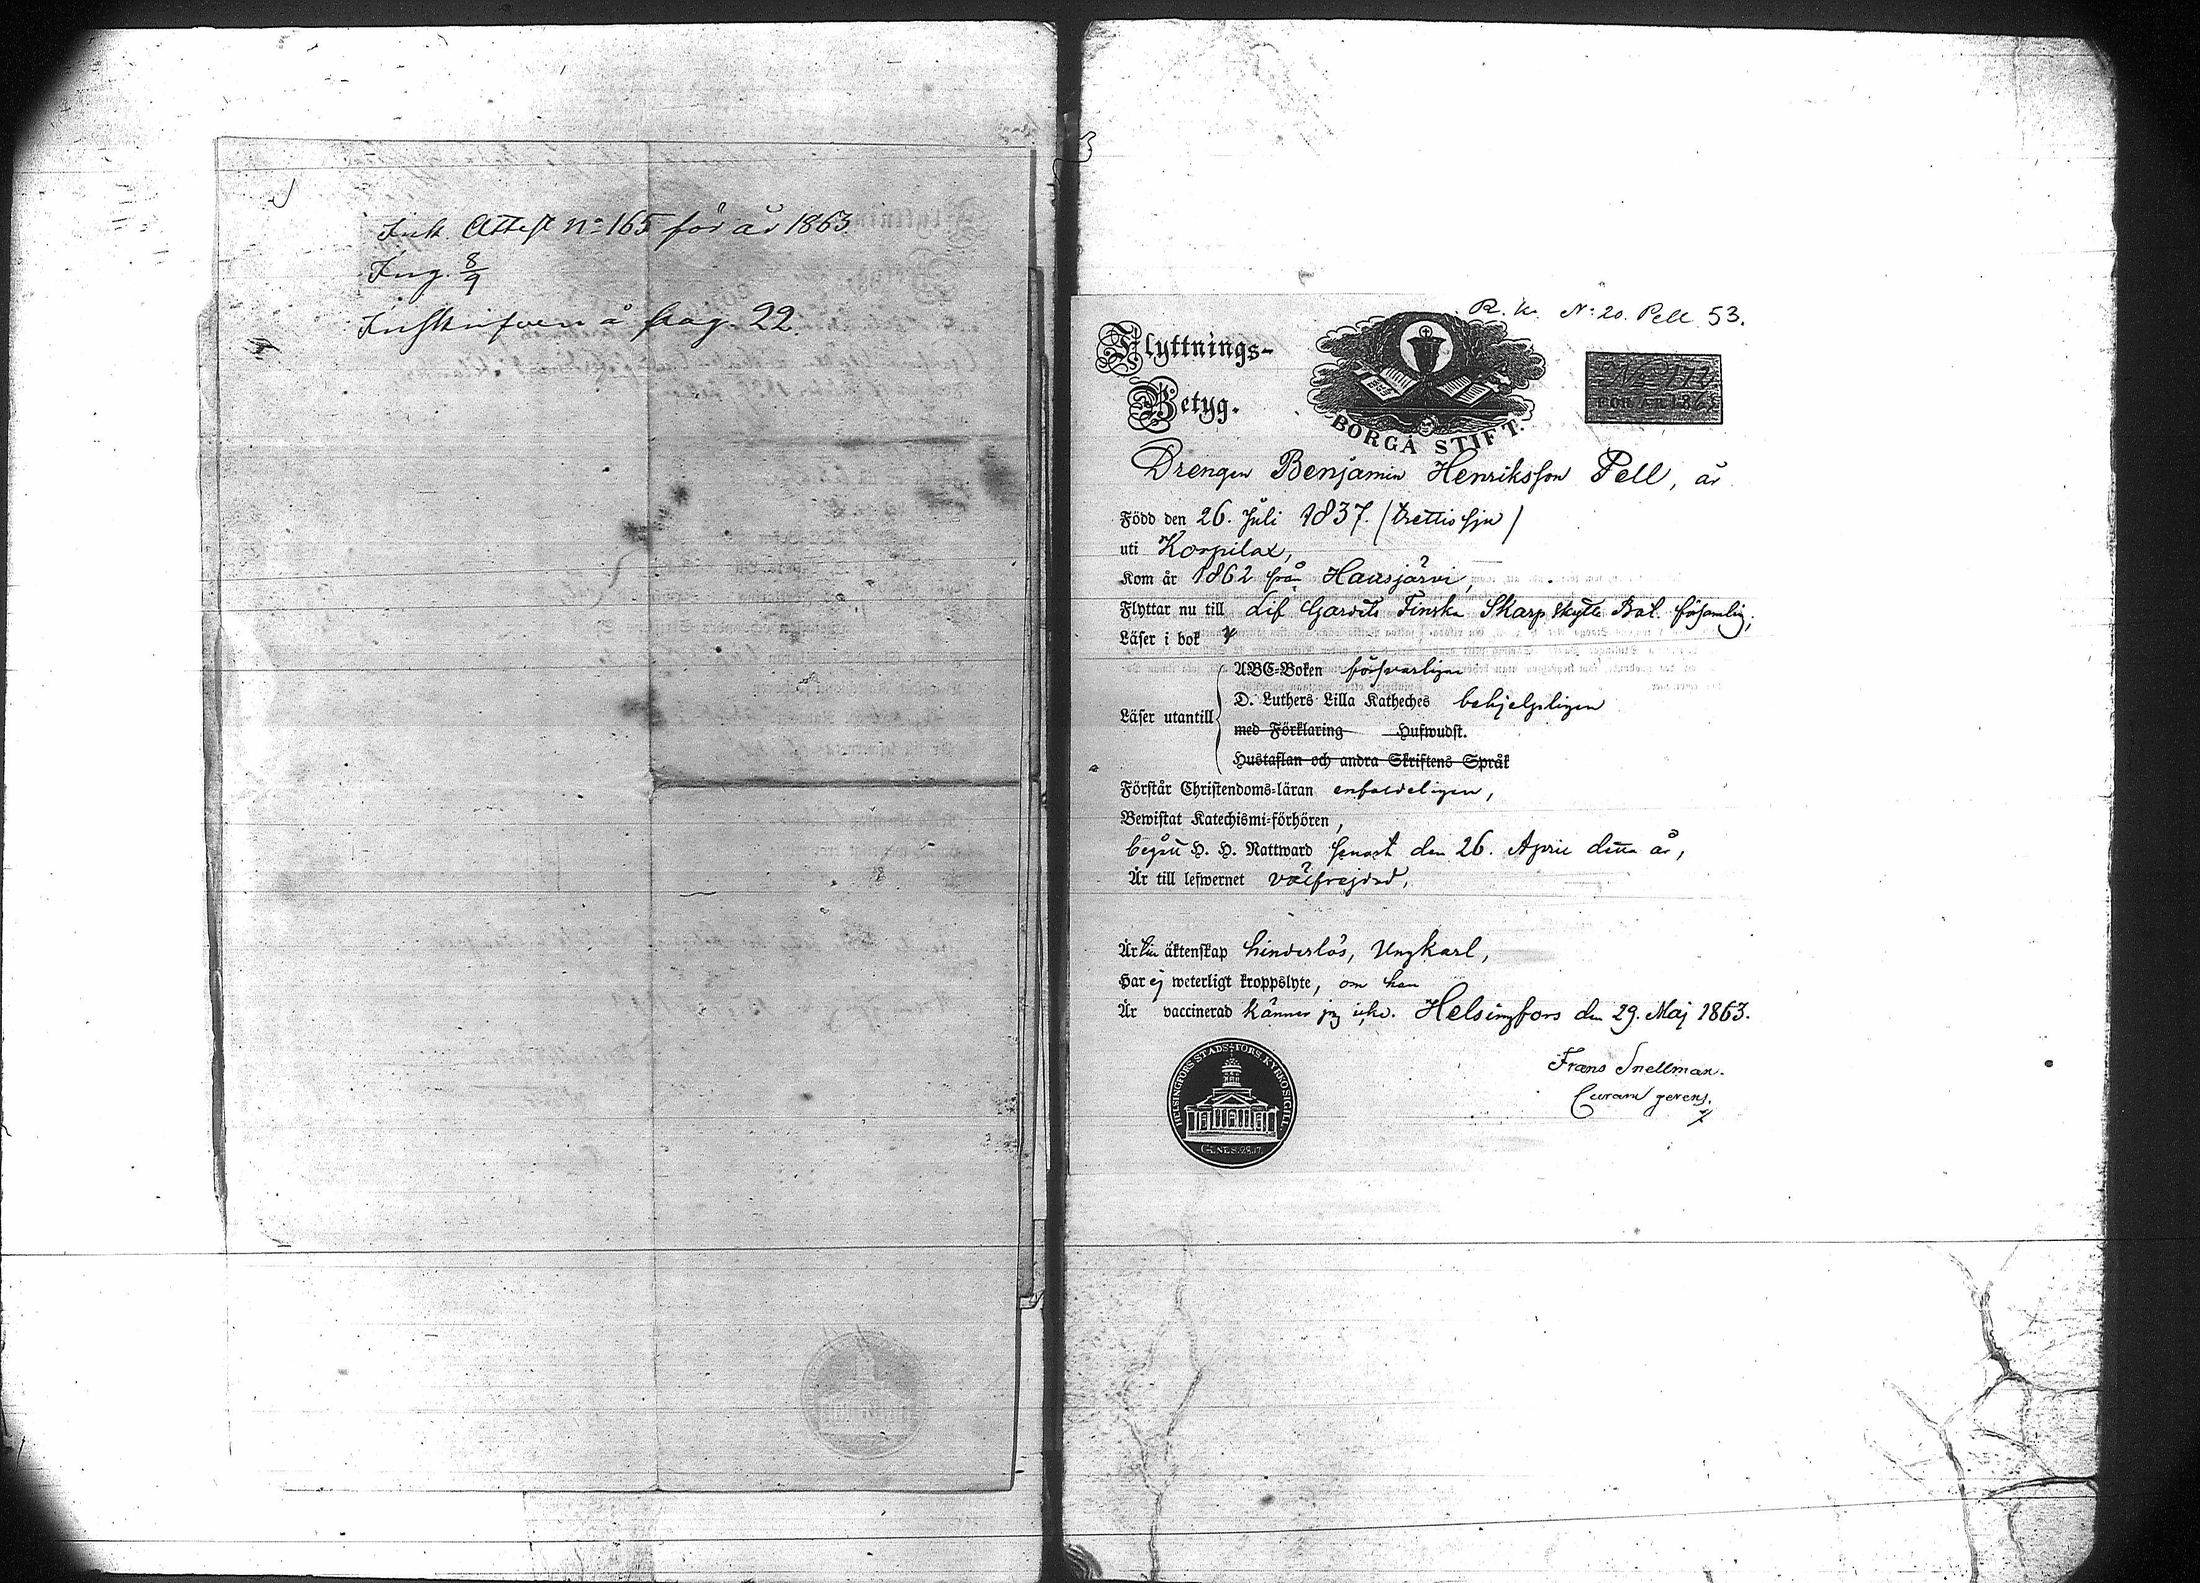 Ink. Attest No 165 för år 1863
Ing. 8/9
Inskrifven å pag. 22.
R. K. No 20. Pell 53.
Flyttnings-
Betyg.
BORGÅ STIFT.
FÖR ÅR 1863
Drengen Benjamin Henriksson Pell, är
Född den 26. Juli 1837. (trettiosju)
uti Korpilax,
Kom år 1862 från Hausjärvi,
Flyttar nu till Lif Gardets Finska Skarp.skytte Bat. församling;
Läser i bok
Läser utantill
ABC-Boken försvarligen
D. Luthers Lilla Katheches behjelpligen
med Förklaring Hufwudst.
Hustaflan och andra Skriftens Språk
Förstår Christendoms-läran enfaldeligen,
Bewistat Katechismi-förhören,
begått H. H. Nattward senast den 26. April detta år,
Är till lefwernet välfrejdad,
Är till äktenskap hinderlös, Ungkarl,
Har ej weterligt kroppslyte, om han
Är vaccinerad känner jag icke. Helsingfors den 29. Maj 1863.
Frans Snellman.
Curam gerens.
HELSINGFORS STADS-FÖRS. KYRKOSIGILL.
GENES. 28.17.